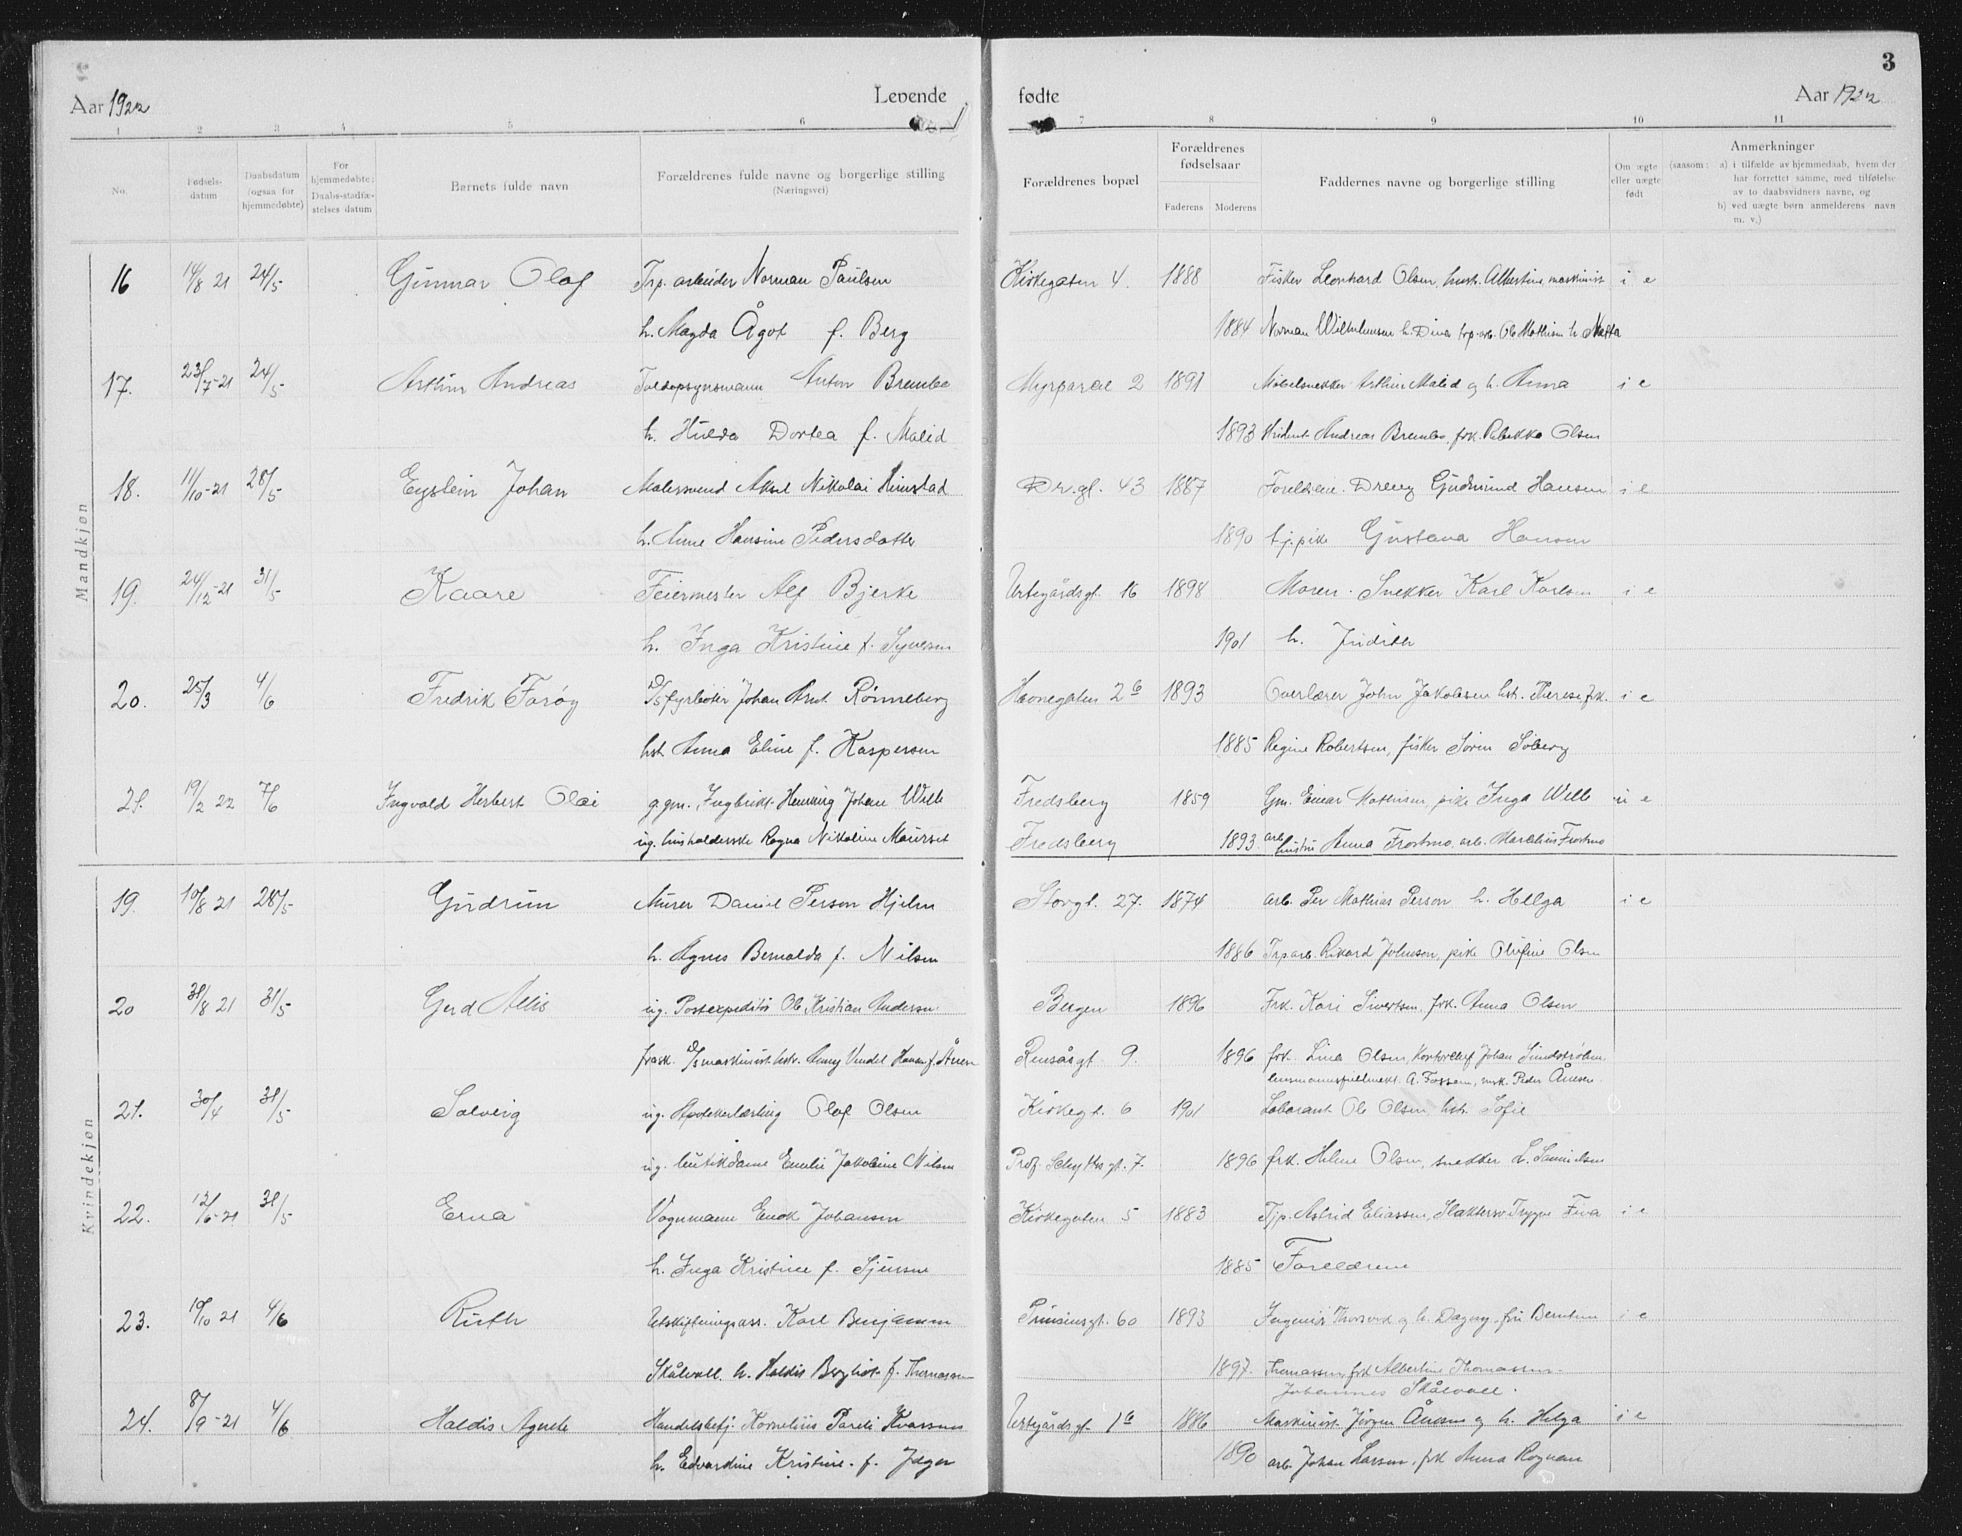 Aar 1922
Levende
fødte
Aar 1922
3
1 2 3 4 5 6 7 8 9 10 11
No.
Fødsels-
datum
Daabsdatum
(ogsaa for
hjemmedøbte)
For
hjemmedøbte:
Daabs-stadfæ-
stelses datum
Barnets fulde navn
Forældrenes fulde navne og borgerlige stilling
(Næringsvei)
Forældrenes bopæl
Forældrenes
fødselsaar
Faderens Moderens
Faddernes navne og borgerlige stilling
Om ægte
eller uægte
født
Anmerkninger
(saasom: a) i tilfælde av hjemmedaab, hvem der
har forrettet samme, med tilføielse
av to daabsvidners navne, og
b) ved uægte børn anmelderens navn
m. v.)
Mandkjøn
16 14/8 21 24/5 Gunnar Olaf Trp. arbeider Norman Paulsen Kirkegaten 4. 1888 Fisker Leonhard Olsen, hustr. Albertine, maskinist i e
h. Magda Ågot f. Berg 1884 Norman Wilhelmsen h. Dina trp. arb. Ole Mathisen h.
17. 23/7-21 24/5 Arthur Andreas Toldopsynsmann Anton Brembo 2 1891 Møbelsnekker Arthur Malid og h. Anna i e
h. Hulda Dortea f. Malid 1893 Andreas Brembo, frk. Rebekka Olsen
18. 11/10-21 28/5 Eystein Johan Malersvend Aksel Nikolai Rinstad Dr.gt. 43 1887 Foreldrene. Dreng Gudmund Hansen i e
h. Anne Hansine Pedersdatter 1890 tj.pike Gustava Hansen
19. 24/12-21 31/5 Kaare Feiermester Alf Bjerke Urtegårdsgt. 16 1898 Moren. Snekker Karl Karlsen i e
h. Inga Kristine f. Syversen 1901 h. Judith
20. 25/3 4/6 Fredrik Farøy D/S fyrbøter Johan Arnt Rønneberg Havnegaten 2b 1893 Overlærer John Jakobsen hst. Therese, frk. i e
hst. Anna Eline f. Kaspersen 1885 Regine Robertsen, fisker Søren Søberg
21. 19/2 22 7/6 Ingvald Herbert Olai g. gm. Ingbrikt Henning Johan Welle Fredsberg 1859 Gm. Einar Mathisen, pike Inga Welle u e
ug. husholderske Ragna Nikoline Maurset Fredsberg 1893 arb. hustru Anna Frostmo, arb. Marelius Frostmo
Kvindekjøn
19. 10/8 21 28/5 Gudrun Murer Daniel Person Hjelm Storgt. 27. 1874 arb. Per Mathias Person h. Helga i e
h. Agnes Bernalda f. Nilsen 1886 Trp arb. Rikard Johnsen, pike Olufine Olsen
20 31/8 21 31/5 Gerd Allis ug. Postexpeditør Ole Kristian Andersen Bergen 1896 Frk. Kari Sivertsen, frk. Anna Olsen
frask. D/S maskinist hstr. Anny Vendel Hansen f. Ånesen Rensåsgt. 9. 1896 frk. Lina Olsen, Kontorchef Johan Sundstrøhm
lensmannsfullmekt. A. Fossem, mask. Peder Ånesen
21. 30/4 31/5 Solveig ug. Apotekerlærling Olaf Olsen Kirkegt. 6 1901 Laborant Ole Olsen, hst. Sofie
ug. butikdame Emelie Jakobine Nilsen Prof. Schyttes gt. 7. 1896 frk. Helene Olsen, snekker L. Samuelsen
22. 12/6-21 31/5 Erna Vognmann Enok Johansen Kirkegaten 5 1883 Tjp. Astrid Eliassen, Slaktersv. Trygve Fiva i e
h. Inga Kristine f. Sjursen 1885 Foreldrene
23. 10/10 21 4/6 Ruth Utskiftningsass. Karl Benjamin Prinsensgt. 60 1893 Ingeniør Thorvald og h. Dagny, fru Berntine i e
Skålvoll h. Haldis Bergliot f. Thomassen 1897. Thomassen, frk Albertine Thomassen
Johannes Skålvoll.
24. 8/9-21 4/6 Haldis Agnete Handelsbetj. Kornelius Pareli Kvassnes Urtegårdsgt. 1b 1886 Maskinist Jørgen Ånesen og h. Helga i e
h. Edvardine Kristine f. Jæger 1890 arb. Johan Larsen, frk Anna Rognan